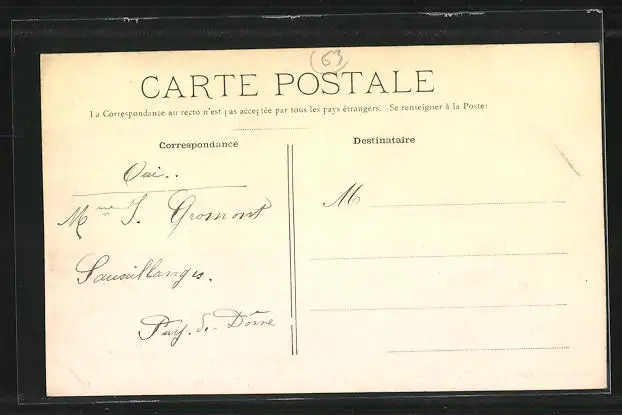 (63)
CARTE POSTALE
La Correspondance au recto n'est pas acceptée par tous les pays étrangers. (Se renseigner à la Poste)
Correspondance
Destinataire
Oui..
Mme J. Gromont
Sauxillanges.
Puy. de. Dôme
M